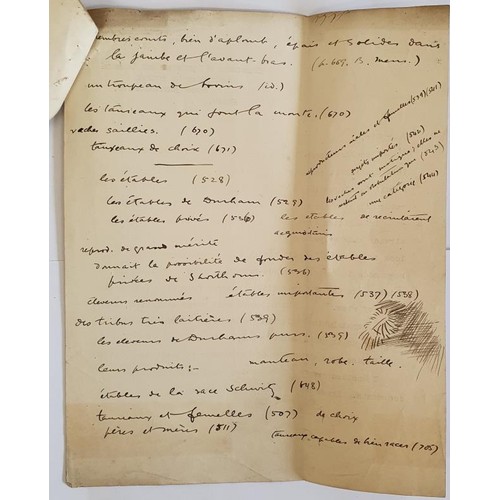 membres courts, bien d'aplomb, épais et solides dans
la jambe et l'avant-bas. (p. 669. B. mens.)
un troupeau de bovins (id.)
les taureaux qui font la monte. (670)
vaches saillies. (670)
taureaux de choix (671)
reproducteurs mâles et femelles (539) (541)
sujets importés (540)
(543)
une catégorie (544)
les étables (528)
les étables de Durham (529)
les étables privés (526) les étables se recrutaient
acquéteurs
reprod. de grand mérite
donnait la possibilité de fonder des étables
privées de Shorthorns. (536)
éleveurs renommés étables importantes (537) (538)
des tribus très laitières (539)
les éleveurs de Durhams purs. (539)
leurs produits :- manteau, robe. taille.
étables de la race Schwitz (648)
taureaux et femelles (507) de choix
pères et mères (511)
taureaux capables de bien racer (705)